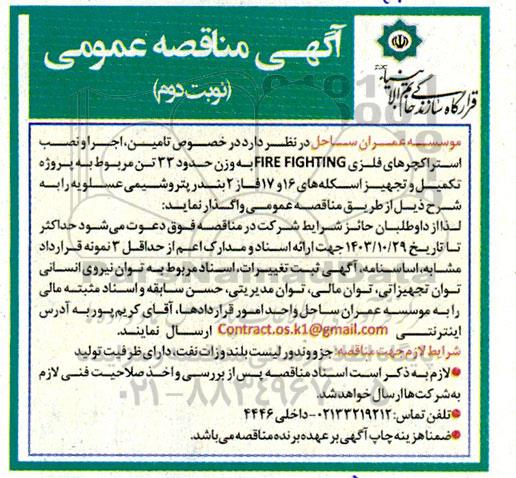 قرارگاه سازندگی خاتم الانبیاء
آگهی مناقصه عمومی
(نوبت دوم)
موسسه عمران ساحل در نظر دارد در خصوص تامین، اجرا و نصب
استراکچرهای فلزی FIRE FIGHTING به وزن حدود ۳۳ تن مربوط به پروژه
تکمیل و تجهیز اسکله‌های ۱۶ و ۱۷ فاز ۲ بندر پتروشیمی عسلویه را به
شرح ذیل از طریق مناقصه عمومی واگذار نماید:
لذا از داوطلبان حائز شرایط شرکت در مناقصه فوق دعوت می‌شود حداکثر
تا تاریخ ۱۴۰۳/۱۰/۲۹ جهت ارائه اسناد و مدارک اعم از حداقل ۳ نمونه قرارداد
مشابه، اساسنامه، آگهی ثبت تغییرات، اسناد مربوط به توان نیروی انسانی
توان تجهیزاتی، توان مالی، توان مدیریتی، حسن سابقه و اسناد مثبته مالی
را به موسسه عمران ساحل واحد امور قراردادها، آقای کریم پور به آدرس
اینترنتی Contract.os.k1@gmail.com ارسال نمایند.
شرایط لازم جهت مناقصه: جزو وندور لیست بلند وزات نفت، دارای ظرفیت تولید
•لازم به ذکر است اسناد مناقصه پس از بررسی و اخذ صلاحیت فنی لازم
به شرکت‌ها ارسال خواهد شد.
•تلفن تماس: ۰۲۱۳۳۲۱۹۲۱۲- داخلی ۴۴۴۶
•ضمنا هزینه چاپ آگهی بر عهده برنده مناقصه می‌باشد.
۰۲۱-۸۸۳۴۹۶۷۰-۵